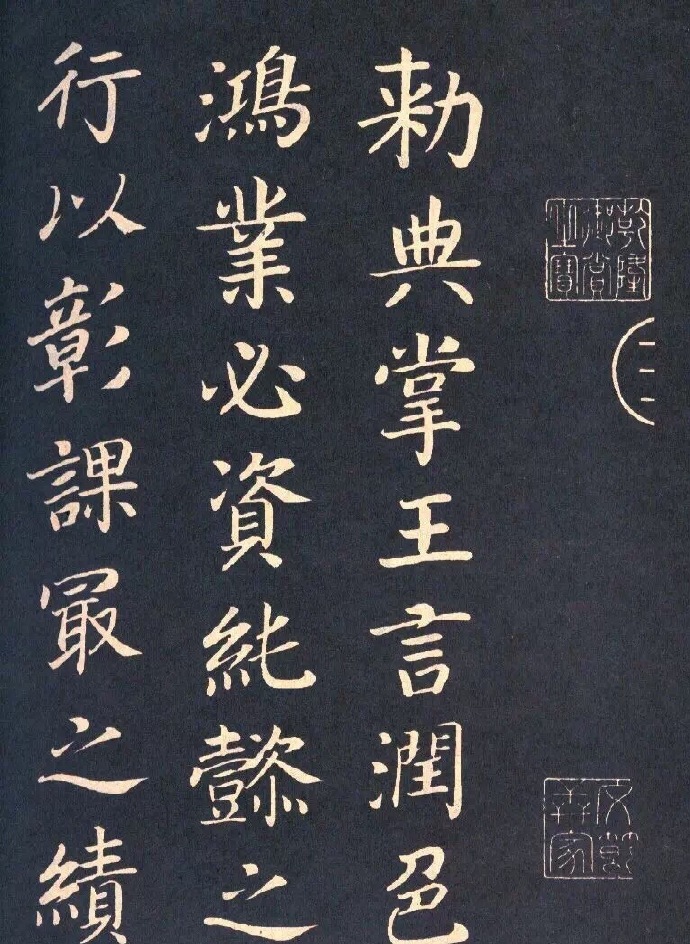 勅典掌王言潤色
鴻業必資純懿之
行以彰課冣之績